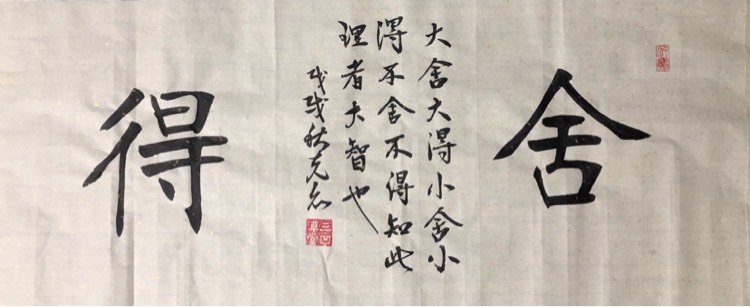 舍
大舍大得小舍小
得不舍不得知此
理者大智也
戊戌秋克名
得